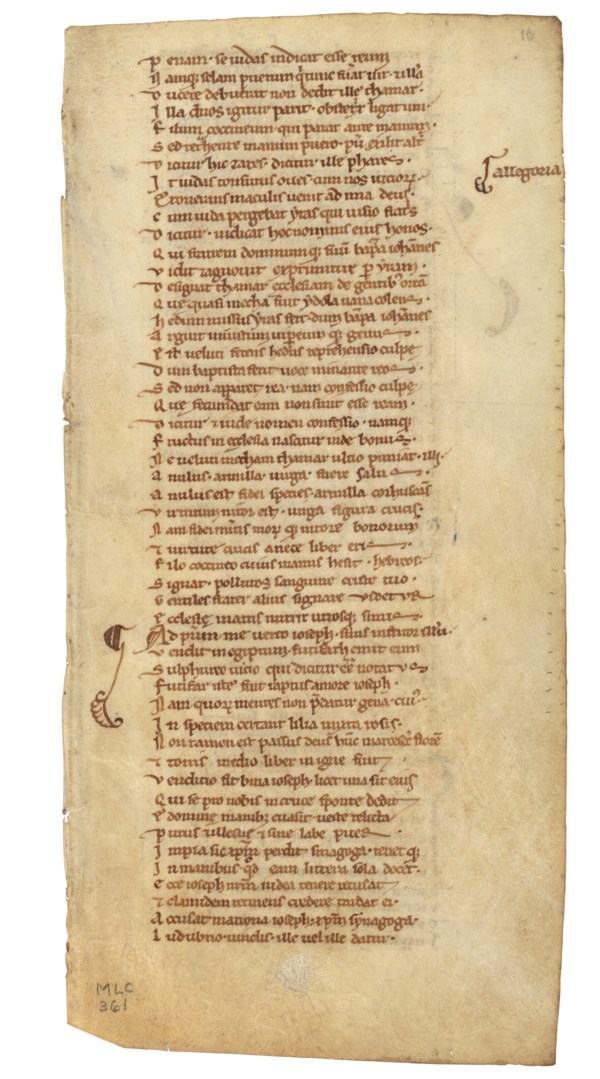 10
P enam · se iudas indicat esse reum
N amq; selam puerum tunc
D ucere debuerat non dedit ille thamar ·
I lla duos igitur parit · obstetrix ligat uni ·
F ilum coccineum · qui parat ante manum ·
S ed retrahente manum puero ·
D icitur hic zares · dicitur ille phares ·
allegoria
I t iudas tonsuris oues · cum nos uiciorum
E xonerans maculis uenit ad ima deus ·
C um iuda pergebat yras qui uisio
D icitur · indicat hoc nominis eius honos ·
Q ui fratrem dominumq; suum bapta iohannes
V idit exprimitur per yram ·
D esignat thamar ecclesiam de gentib'
Q ue quasi mecha fuit ydola uana colens
h edum missus yras fert · dum bapta iohannes
A rguit iniustum uipereumq; genus
E st ueluti fetens hedus reprehensio culpe
D um baptista ferit uoce minante reos ·
S ed non apparet rea · nam confessio culpe
Q ue fecundat eam non sinit esse ream ·
D icitur & iude nomen confessio · namq;
F ructus in ecclesia nascitur inde bonus
N e ueluti mecham thamar ultio puniat · illi
A nulus · armilla · uirga · fuere salus ·
A nulus est fidei species · armilla
V irtutum nitor est · uirga figura crucis ·
N am fidei morumq; nitore bonorum
& uirtute crucis a nece liber eris
F ilo coccineo cuius manus hesit · hebreos
S ignat · pollutos sanguine criste tuo ·
G entiles frater alius signare uidetur
E cclesie matris nutrit utrosq; sinus
Ad me uerto ioseph ·
V endit in egiptum · futifarth emit eum
S ulphureo uicio qui dicitur
F utifar iste fuit captus amore ioseph ·
N am quorum mentes non gena cui'
I n speciem certant lilia mixta rosis ·
N on tamen est passus deus hunc marcescere florem
& torris medio liber in igne fuit
V enditio fit bina ioseph · licet una sit eius
Q ui se pro nobis in cruce sponte dedit
E domine manibus euasit ueste relicta
P urus illesus & sine labe puer ·
I mpia sic perdit sinagoga · tenetq;
I n manibus · quod eam littera sola docet ·
E cce ioseph iudea tenere recusat
& clamidem retinens credere tardat ei ·
A ccusat matrona ioseph · synagoga ·
L udubrio · uinclis · ille uel ille datur ·
MLC
361